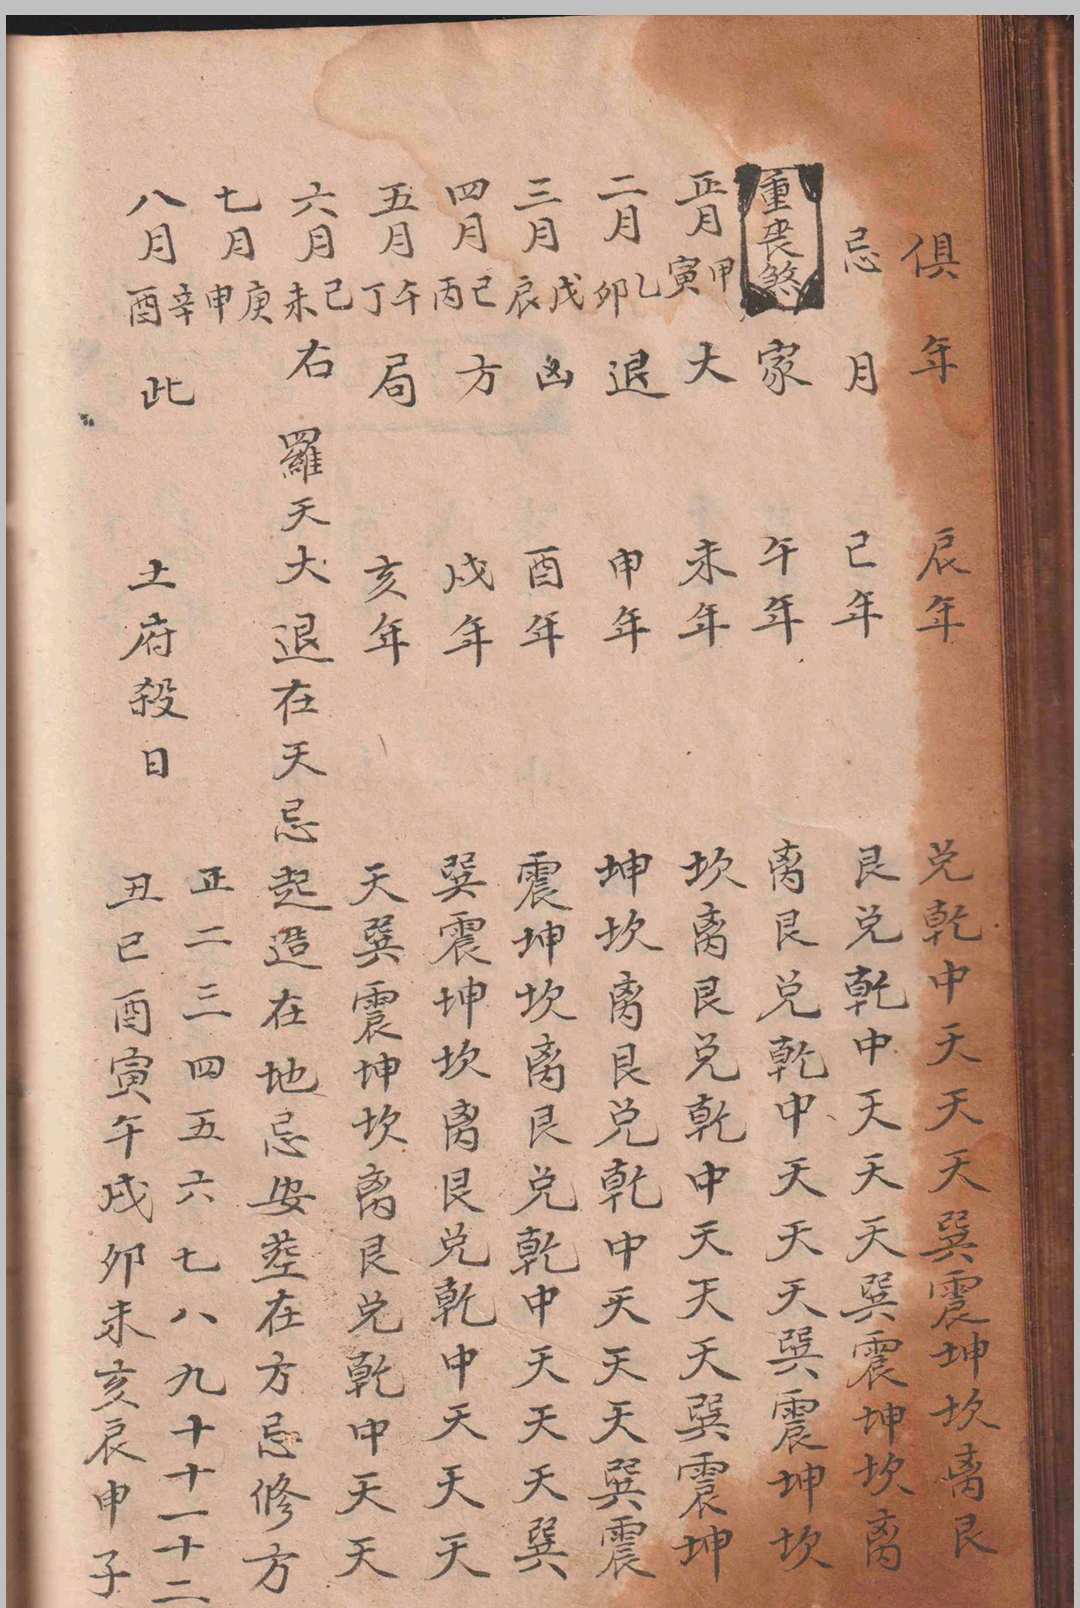 俱年 辰年 兑乾中天天天巽震坤坎离艮
忌月 巳年 艮兑乾中天天天巽震坤坎离
重丧煞 家 午年 离艮兑乾中天天天巽震坤坎
正月甲寅 大 未年 坎离艮兑乾中天天天巽震坤
二月乙卯 退 申年 坤坎离艮兑乾中天天天巽震
三月戊辰 凶 酉年 震坤坎离艮兑乾中天天天巽
四月巳丙 方 戌年 巽震坤坎离艮兑乾中天天天
五月午丁 局 亥年 天巽震坤坎离艮兑乾中天天
六月己未 右羅天大退在天忌起造在地忌安塟在方忌修方
七月庚申 正二三四五六七八九十十一十二
八月辛酉 此 土府殺日 丑巳酉寅午戌卯未亥辰申子